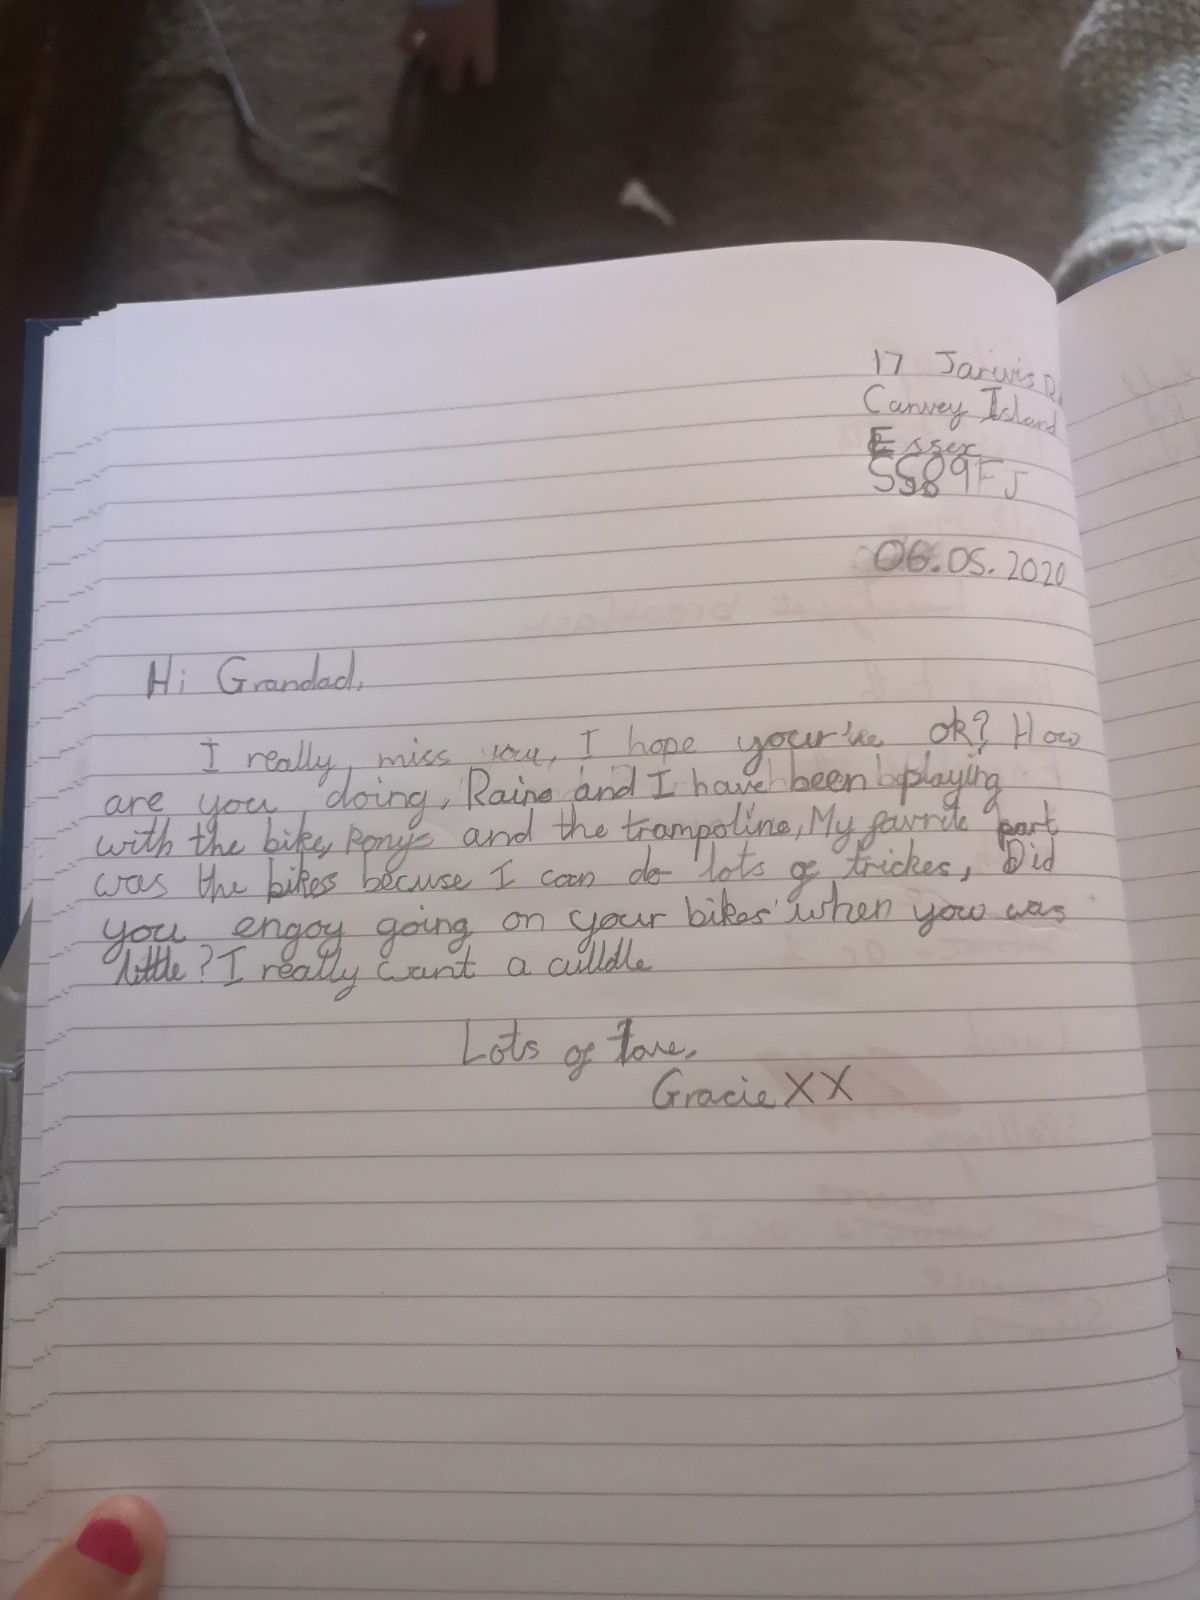 17 Jarvis Rd
Canvey Island
Essex
SS89FJ
06.05.2020
Hi Grandad,
I really miss you, I hope your're ok? How
are you doing, Raine and I have been playing
with the bike, Ponys and the trampoline, My favrite part
was the bikes becuse I can do lots of trickes, Did
you engoy going on your bikes when you was
little? I really want a culldle
Lots of love,
Gracie XX